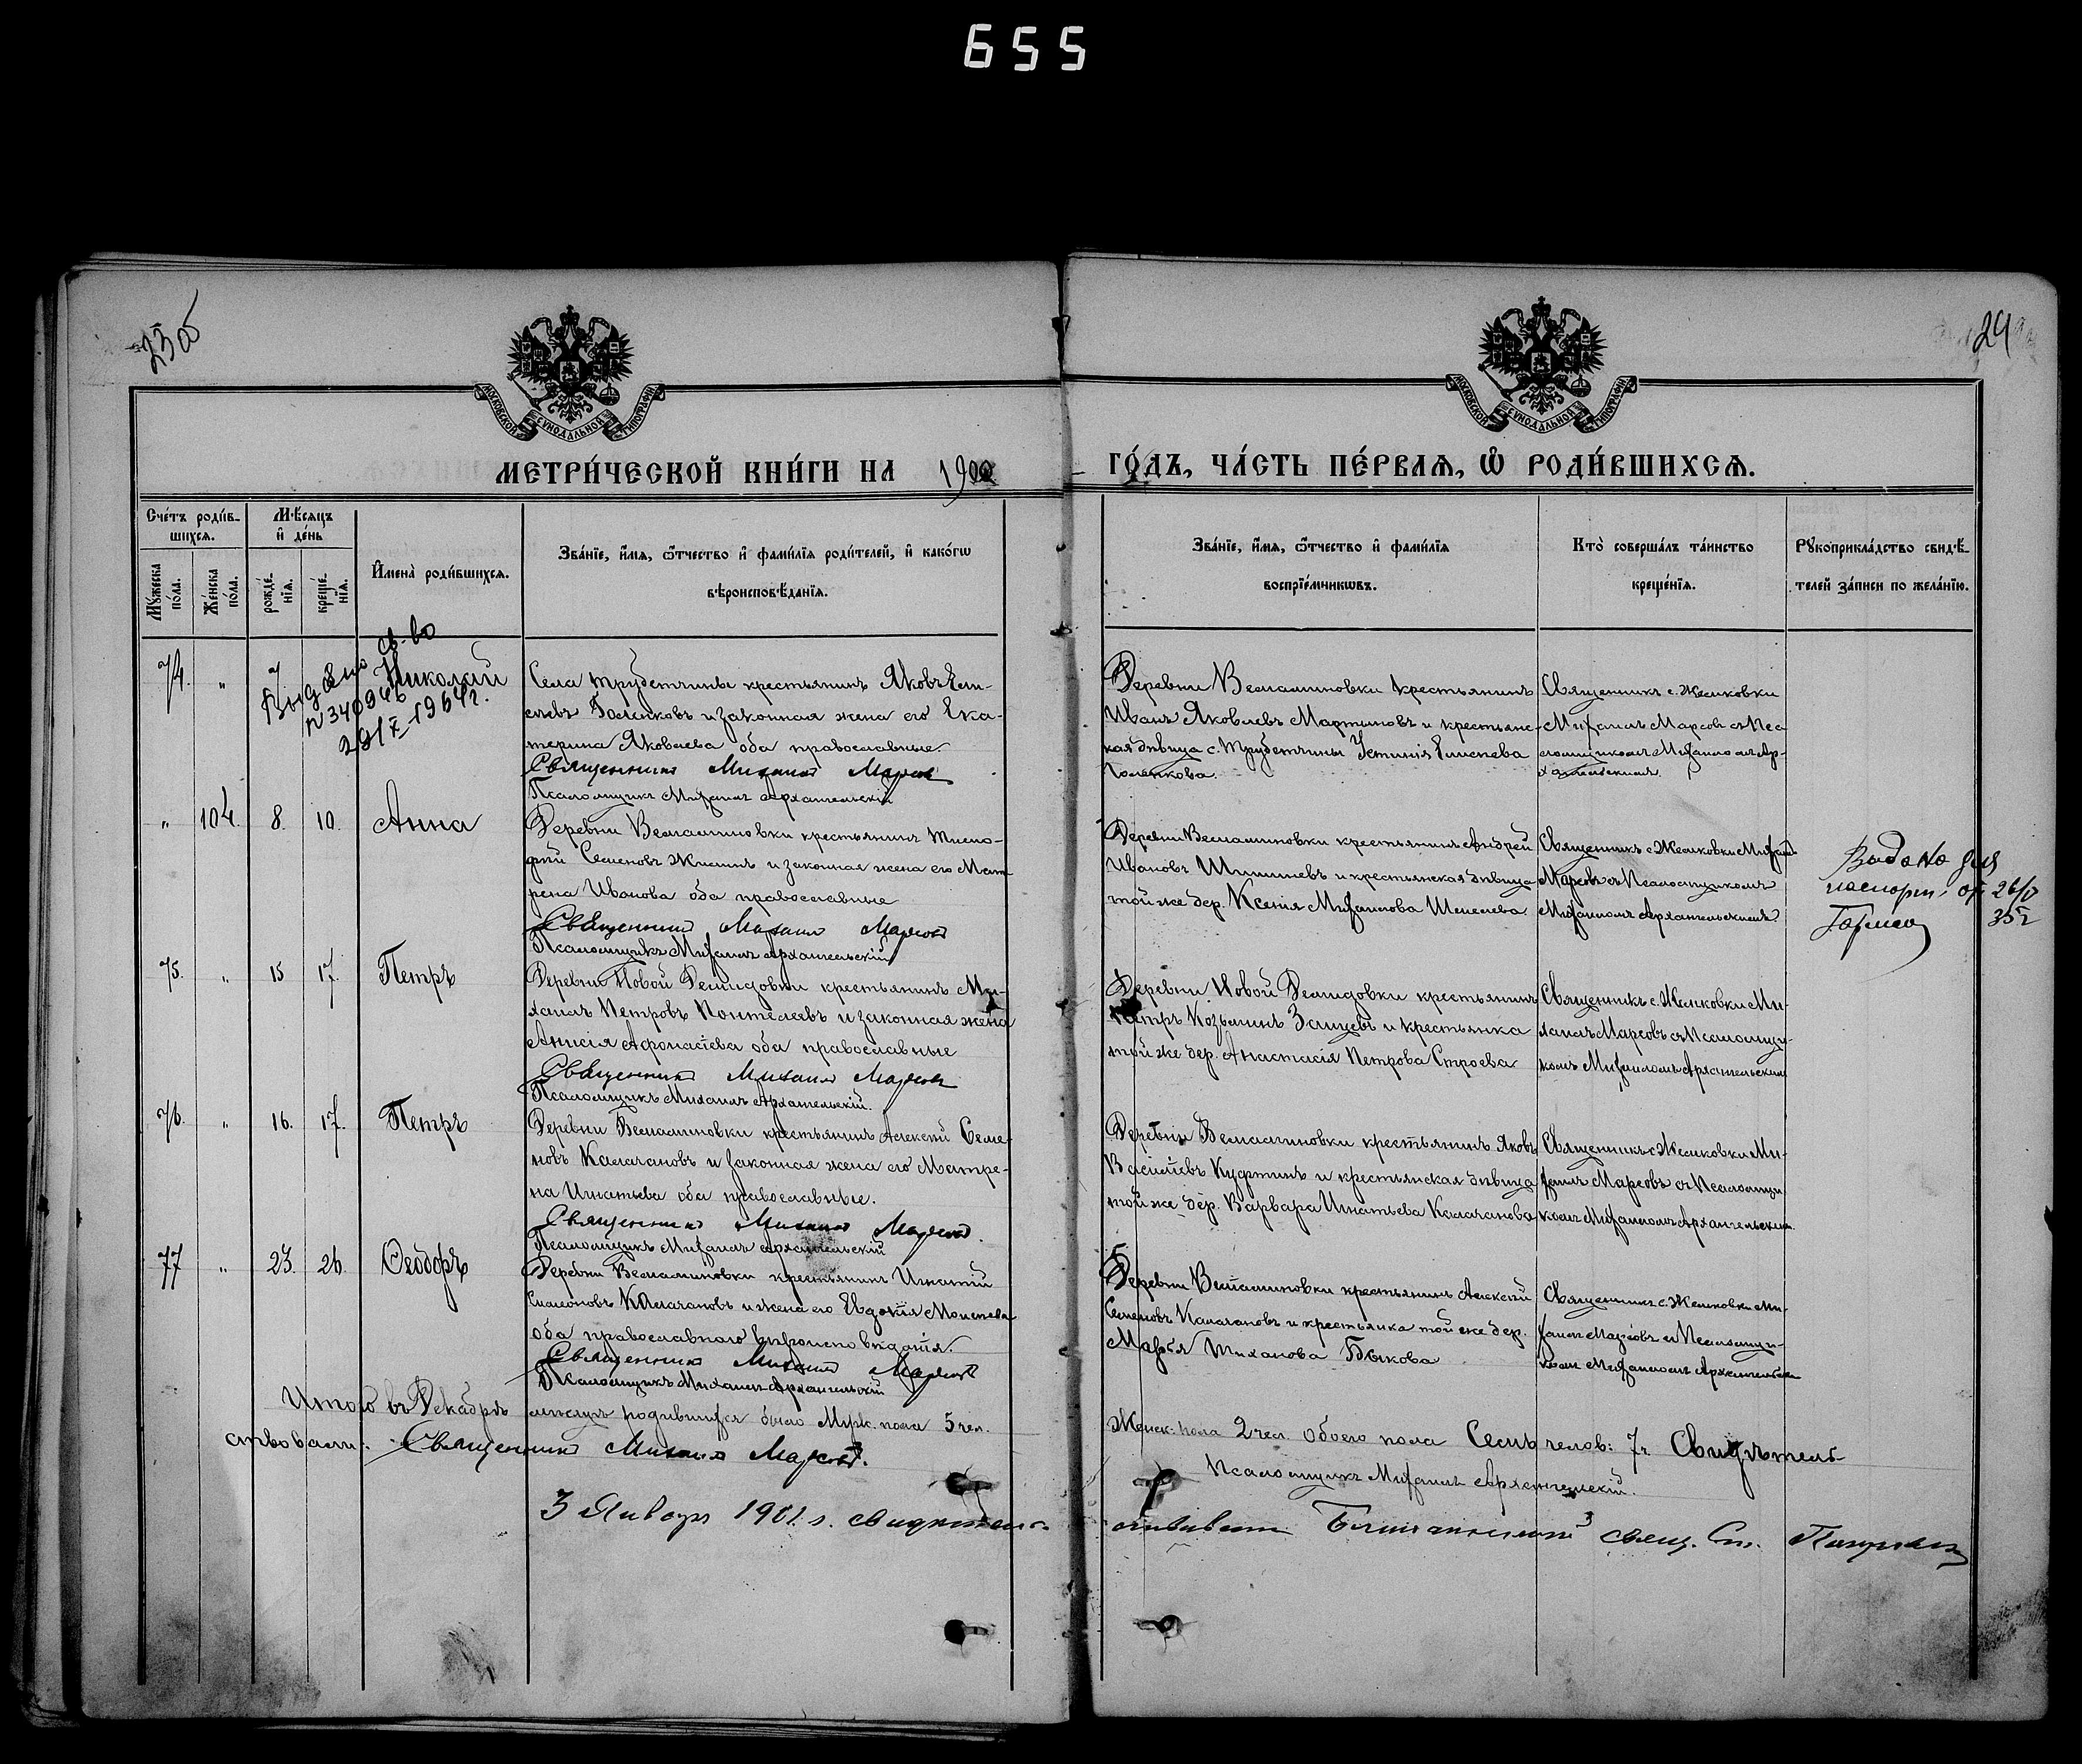 655
23об
24
МОСКОВСКОЙ СѴНОДАЛЬНОЙ ТИПОГРАФІИ
МОСКОВСКОЙ СѴНОДАЛЬНОЙ ТИПОГРАФІИ
МЕТРИ́ЧЕСКОЙ КНИ́ГИ НА 1900
ГО́ДЪ, ЧА́СТЬ ПЕ́РВАѦ, Ѽ РОДИ́ВШИХСѦ.
Сче́тъ роди́в-
шихсѧ.
Мꙋ́жеска по́ла.
Же́нска по́ла.
Мѣ́сѧцъ и҆ де́нь
рожде́-
нїѧ.
креще́-
нїѧ.
И҆мена̀ роди́вшихсѧ.
Зва́нїе, и҆́мѧ, ѻ҆́тчество и҆ фами́лїѧ роди́телей, и҆ како́гѡ
вѣроисповѣ́данїѧ.
Зва́нїе, и҆́мѧ, ѻ҆́тчество и҆ фами́лїѧ
воспрїе́мникѡвъ.
Кто̀ соверша́лъ та́инство
креще́нїѧ.
Рꙋкоприкла́дство свидѣ́-
телей за́писи по жела́нію.
74. " 7 Николай
Выдано св-во
N 340946
29/X-1964г.
Села Трубетчины крестьянинъ Яковъ Ели-
сеевъ Голенковъ и законная жена его Ека-
терина Яковлева оба православные
Священникъ Михаилъ Марсовъ
Псаломщикъ Михаилъ Архангельскій
Деревни Вельяминовки крестьянинъ
Иванъ Яковлевъ Мартыновъ и крестьянс-
кая дѣвица с. Трубетчины Устинія Елисеева
Голенкова.
Священникъ с. Желковки
Михаилъ Марсовъ съ Пса-
ломщикомъ Михаиломъ Ар-
хангельскимъ
" 104. 8. 10. Анна
Деревни Вельяминовки крестьянинъ Тимо-
фей Семеновъ и законная жена его Мат
рена Иванова оба православные
Священникъ Михаилъ Марсовъ
Псаломщикъ Михаилъ Архангельскій
Деревни Вельяминовки крестьянинъ Андрей
Ивановъ и крестьянская дѣвица
той же дер. Ксенія Михаилова Шепелева
Священникъ с. Желковки Михаилъ
Марсовъ съ Псаломщикомъ
Михаиломъ Архангельскимъ
Выдано для
паспорт. от 26/V
35г
75. " 15 17. Петръ
Деревни Новой Демидовки крестьянинъ Ми-
хаилъ Петровъ Понтелеевъ и законная жена
Анисія Афонасіева оба православные
Священникъ Михаилъ Марсовъ
Псаломщикъ Михаилъ Архангельскій.
Деревни Новой Демидовки крестьянинъ
Петръ Козьминъ Зайцевъ и крестьянка
той же дер. Анастасія Петрова Строева
Священникъ с. Желковки Ми-
хаилъ Марсовъ съ Псаломщи-
комъ Михаиломъ Архангельскимъ
76. " 16. 17. Петръ
Деревни Вельяминовки крестьянинъ Алексей Семе-
новъ Калачановъ и законная жена его Матре-
на Игнатьева оба православные.
Священникъ Михаилъ Марсовъ.
Псаломщикъ Михаилъ Архангельскій
Деревни Вельяминовки крестьянинъ Яковъ
Василіевъ и крестьянская дѣвица
той же дер. Варвара Игнатьева Калачанова
Священникъ с. Желковки Ми-
хаилъ Марсовъ съ Псаломщи
комъ Михаиломъ Архангельскимъ.
77 " 23. 26. Ѳеодоръ
Деревни Вельяминовки крестьянинъ Игнатій
Симеоновъ Калачановъ и жена его Евдокія Моисеева
оба православнаго вѣроисповѣданія.
Священникъ Михаилъ Марсовъ
Псаломщикъ Михаилъ Архангельскій
Деревни Вельяминовки крестьянинъ Алексей
Семеновъ Калачановъ и крестьянка той же дер.
Марѳа Тиханова Быкова
Священникъ с. Желковки Ми-
хаилъ Марсовъ съ Псаломщи-
комъ Михаиломъ Архангельским
Итого въ Декабрѣ мѣсяцѣ родившихся было Муж. пола 5 чел.
Женск. пола 2 чел. Обоего пола Семь челов: 7ч. Свидѣтель-
ствовали: Священникъ Михаилъ Марсовъ.
Псаломщикъ Михаилъ Архангельскій.
3 Января 1901. г. свидѣтель-
ствовалъ свящ. Ст.